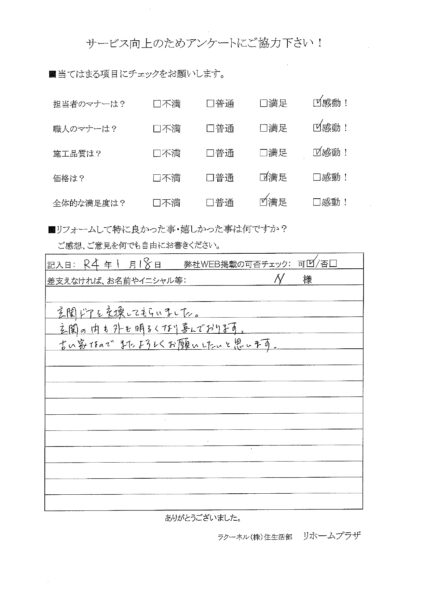 サービス向上のためアンケートにご協力下さい！
■当てはまる項目にチェックをお願いします。
担当者のマナーは？ □不満 □普通 □満足 ☑感動！
職人のマナーは？ □不満 □普通 □満足 ☑感動！
施工品質は？ □不満 □普通 □満足 ☑感動！
価格は？ □不満 □普通 ☑満足 □感動！
全体的な満足度は？ □不満 □普通 ☑満足 □感動！
■リフォームして特に良かった事・嬉しかった事は何ですか？
ご感想、ご意見を何でも自由にお書きください。
記入日： R4 年 1 月 18 日 弊社WEB掲載の可否チェック： 可☑/否□
差支えなければ、お名前やイニシャル等： N 様
玄関ドアを交換してもらいました。
玄関の内も外も明るくなり喜んでおります。
古い家なので またよろしくお願いしたいと思います。
ありがとうございました。
ラクーネル（株）住生活部 リホームプラザ